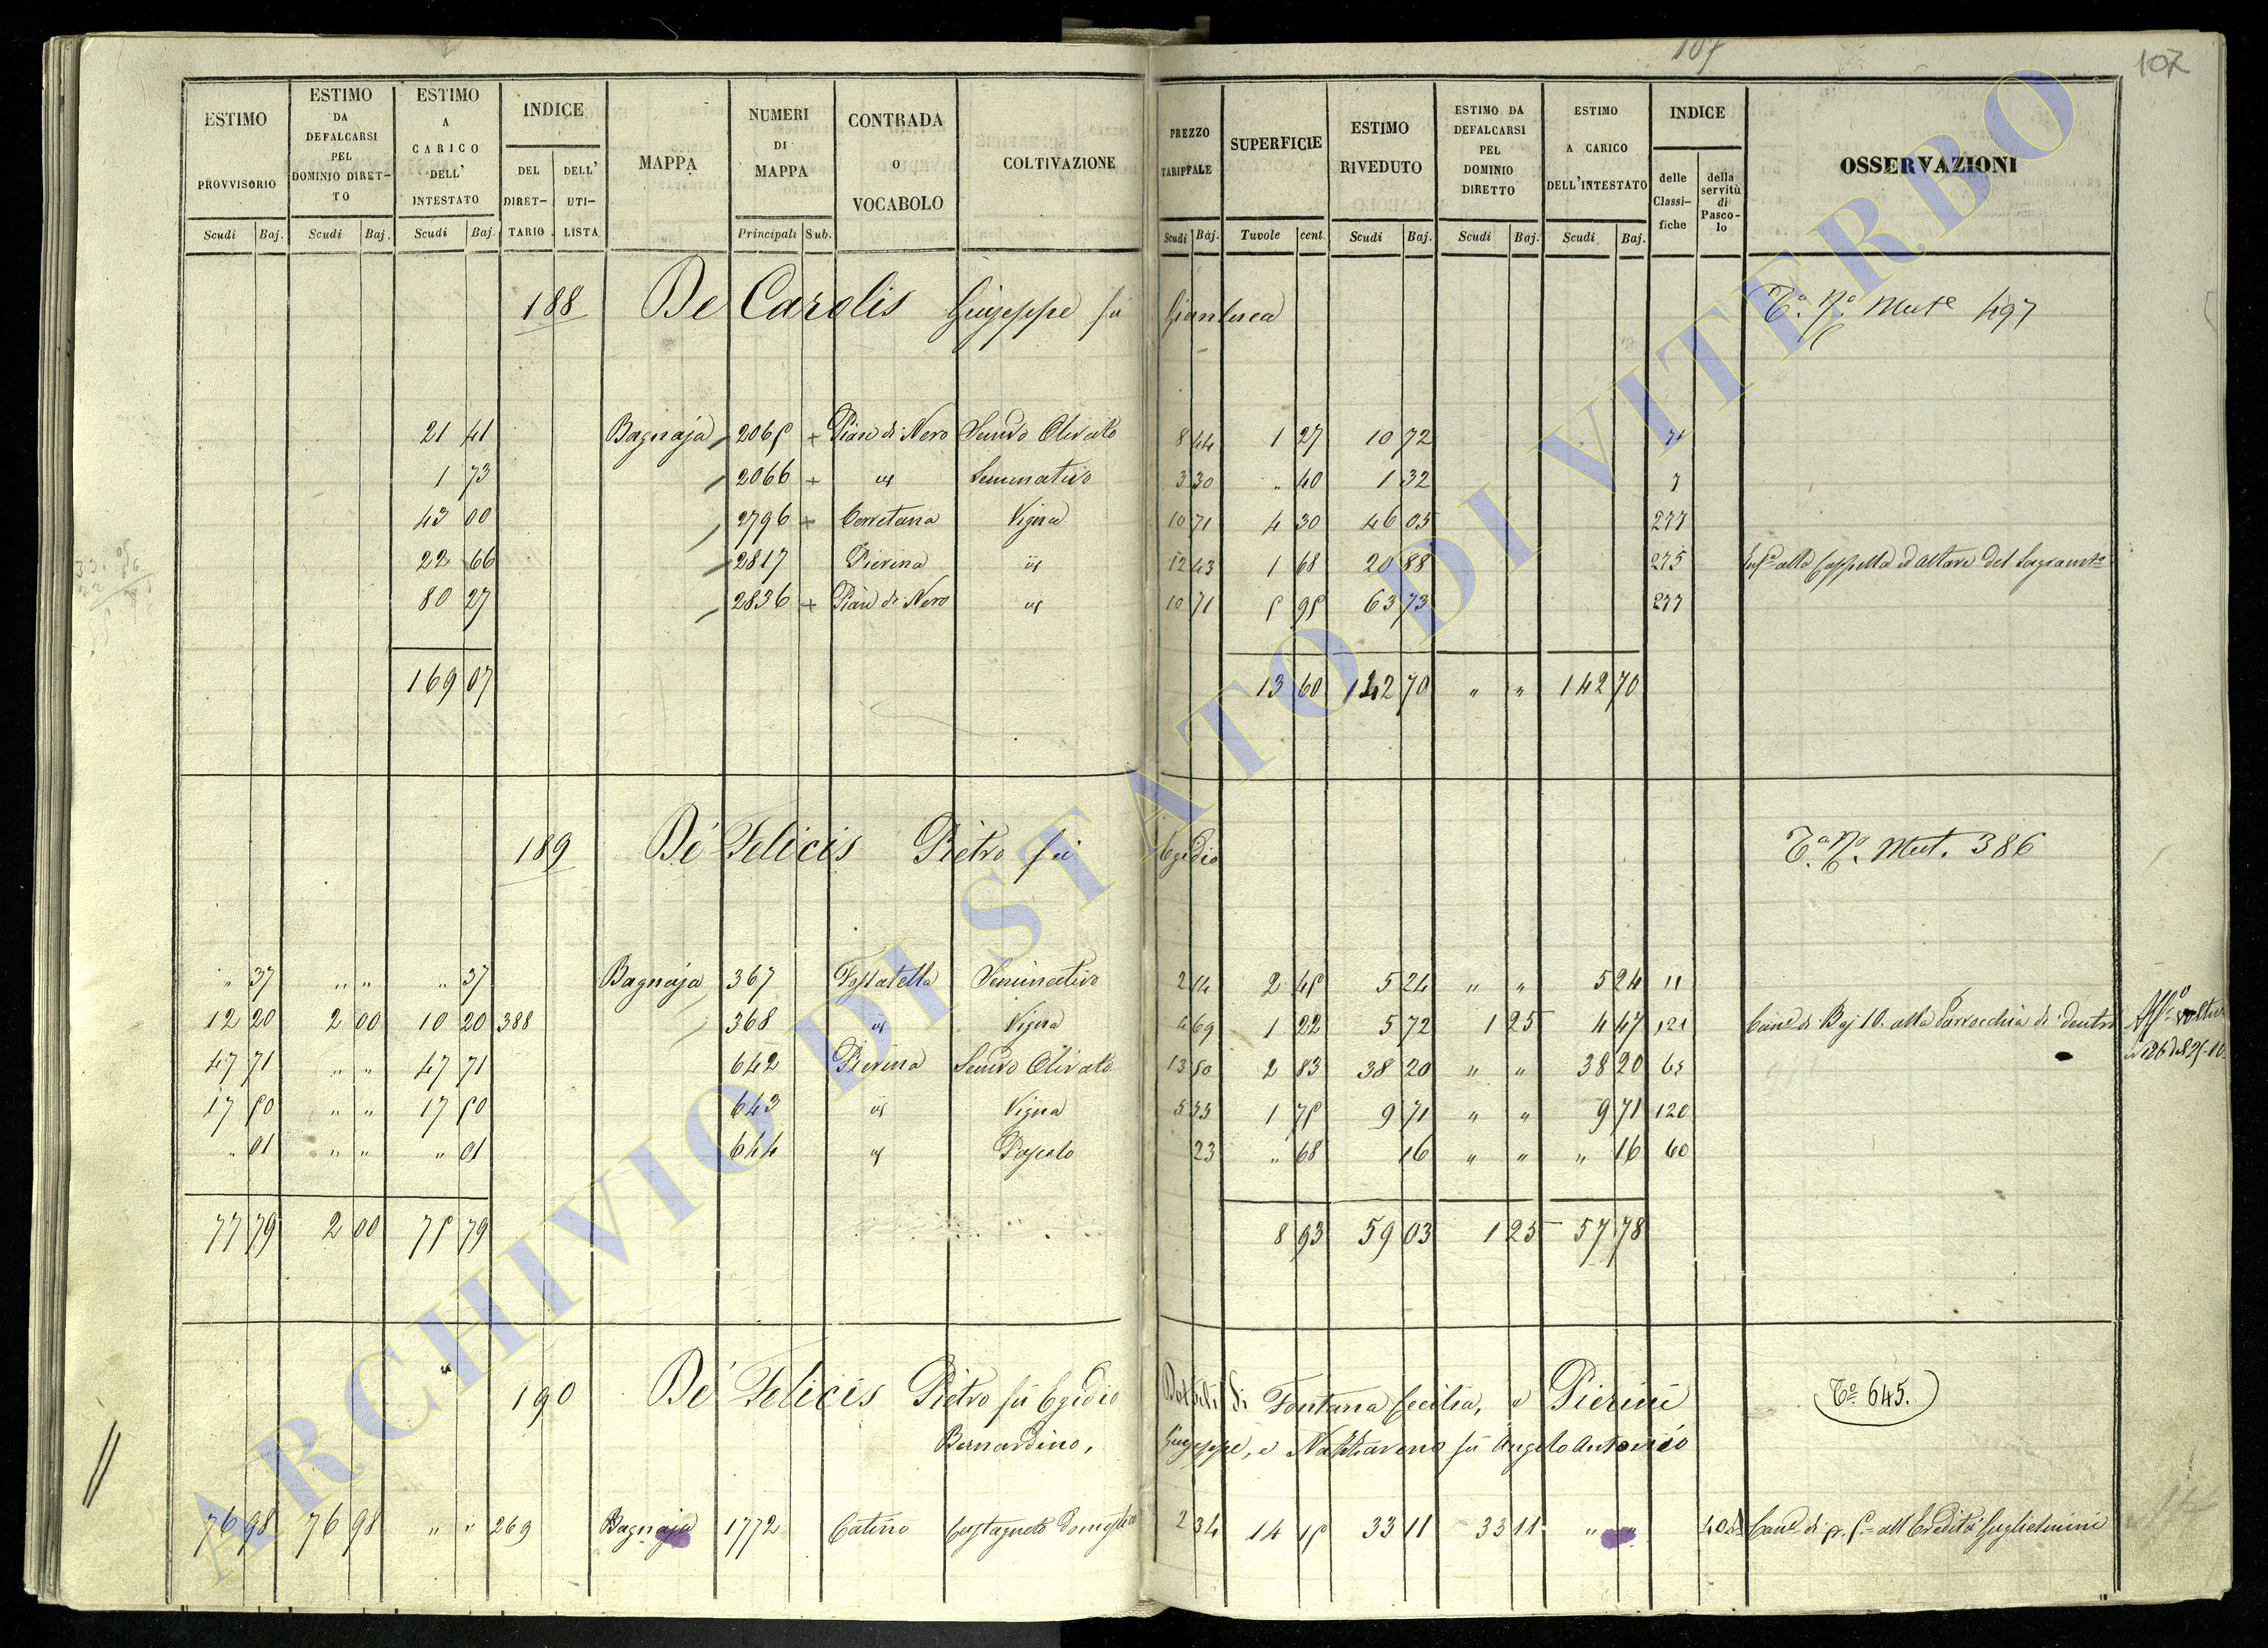 107
107
ESTIMO PROVVISORIO Scudi Baj.
ESTIMO DA DEFALCARSI PEL DOMINIO DIRETTO Scudi Baj.
ESTIMO A CARICO DELL' INTESTATO Scudi Baj.
INDICE DEL DIRETTARIO DELL' UTILISTA
MAPPA
NUMERI DI MAPPA Principali Sub.
CONTRADA o VOCABOLO
COLTIVAZIONE
PREZZO TARIFFALE Scudi Baj.
SUPERFICIE Tavole cent.
ESTIMO RIVEDUTO Scudi Baj.
ESTIMO DA DEFALCARSI PEL DOMINIO DIRETTO Scudi Baj.
ESTIMO A CARICO DELL'INTESTATO Scudi Baj.
INDICE delle Classifiche della servitù di Pascolo
OSSERVAZIONI
188 De Carolis Giuseppe fù Gianluca Mut.e 497
21 41 Bagnaja 2065 + Pian di Nero Semvo Olivato 8 44 1 27 10 72 71
1 73 2066 + id Seminativo 3 30 " 40 1 32 7
43 00 2796 + Corretana Vigna 10 71 4 30 46 05 277
22 66 2817 Pierina id 12 43 1 68 20 88 275 alla Cappella ed altare del
80 27 2836 + Pian di Nero id 10 71 5 95 63 73 277
169 07 13 60 142 70 " " 142 70
189 De Felicis Pietro fù Egidio Mut. 386
" 37 " " " 37 Bagnaja 367 Fossatella Seminativo 2 14 2 45 5 24 " " 5 24 11
12 20 2 00 10 20 388 368 id Vigna 4 69 1 22 5 72 1 25 4 47 121 Cane di Baj 10. alla Parrocchia di dentro
47 71 " " 47 71 642 Pierina Semvo Olivato 13 50 2 83 38 20 " " 38 20 65
17 50 " " 17 50 643 id Vigna 5 55 1 75 9 71 " " 9 71 120
" 01 " " " 01 644 id Pascolo 23 " 68 16 " " " 16 60
77 79 2 00 75 79 8 93 59 03 1 25 57 78
190 De Felicis Pietro fù Egidio di Fontana Cecilia, e Pierini To 645.
Bernardino, Giuseppe, e Nazzareno fù Angelo Antonio
76 98 76 98 " " 269 Bagnaja 1772 Catino Castagneto domestico 2 34 14 15 33 11 33 11 " " Cane di all'Eredità Guglielmini
ARCHIVIO DI STATO DI VITERBO